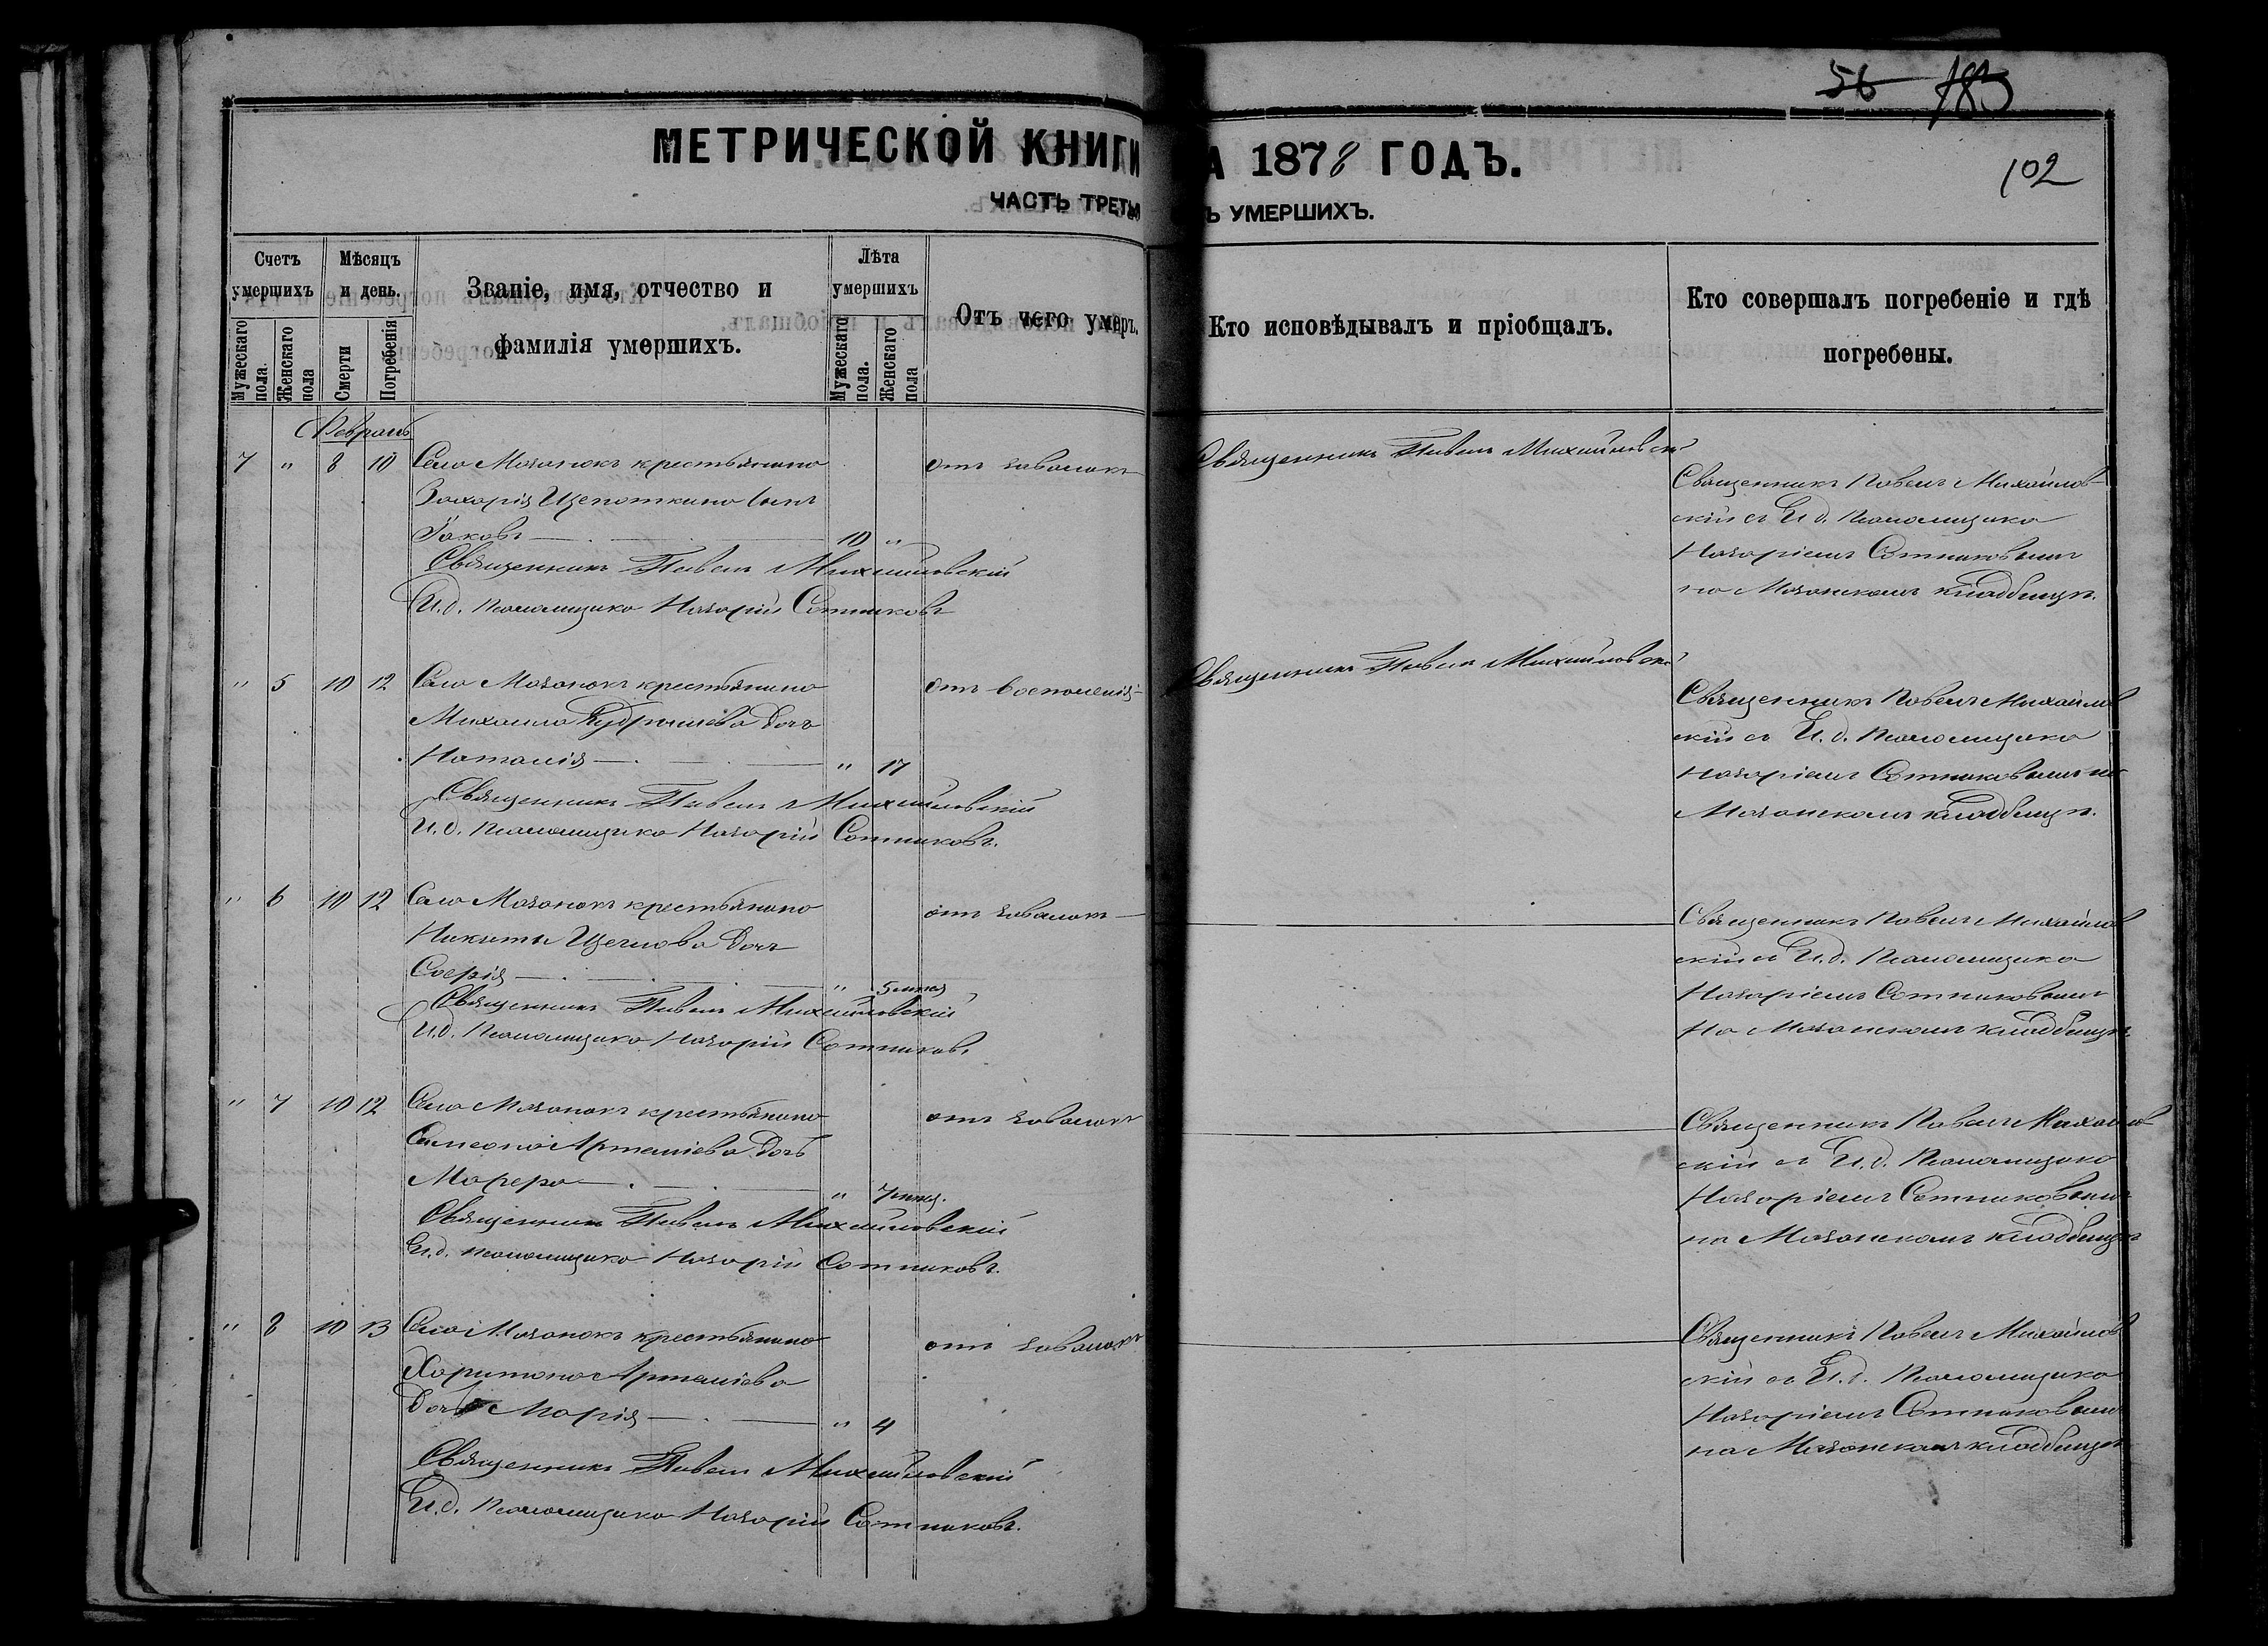 56 183
МЕТРИЧЕСКОЙ КНИГИ
А 1878 ГОДЪ.
102
ЧАСТЬ ТРЕТЬ
Ъ УМЕРШИХЪ.
Счетъ умершихъ
Мѣсяцъ и день.
Званіе, имя, отчество и фамилія умершихъ.
Лѣта умершихъ
Отъ чего умеръ.
Кто исповѣдывалъ и пріобщалъ.
Кто совершалъ погребеніе и гдѣ погребены.
Мужескаго пола.
Женскаго пола
Смерти
Погребенія
Мужескаго пола.
Женскаго пола
Февраль
7 " 8 10 Села Мазанокъ крестьянина
Захарія Щепоткина сынъ
Іаковъ 10 "
отъ
Священникъ Павелъ Михайловскій
Священникъ Павелъ Михайлов-
скій съ И.д. Псаломщика
Назаріемъ Сотниковымъ
на Мазанскомъ кладбищѣ.
Священникъ Павелъ Михайловскій
И.д. Псаломщика Назарій Сотниковъ
" 5 10 12 Села Мазанокъ крестьянина
Михаила дочь
Наталія " 17
отъ воспаленія
Священникъ Павелъ Михайловскій
Священникъ Павелъ Михайлов
скій съ И.д. Псаломщика
Назаріемъ Сотниковымъ на
Мазанскомъ кладбищѣ.
Священникъ Павелъ Михайловскій
И.д. Псаломщика Назарій Сотниковъ.
" 6 10 12 Села Мазанокъ крестьянина
Никиты Щеглова дочь
Софія " 5 мѣся
отъ
Священникъ Павелъ Михайлов
скій съ И.д. Псаломщика
Назаріемъ Сотниковымъ
На Мазанскомъ кладбищѣ
Священникъ Павелъ Михайловскій
И.д. Псаломщика Назарій Сотниковъ
" 7 10 12 Села Мазанокъ крестьянина
Симеона Артеміева дочь
" 7 мѣся.
отъ
Священникъ Павелъ Михайлов
скій съ И.д. Псаломщика
Назаріемъ Сотниковымъ
на Мазанскомъ кладбищѣ
Священникъ Павелъ Михайловскій
И.д. Псаломщика Назарій Сотниковъ.
" 8 10 13 Села Мазанокъ крестьянина
Харитона Артеміева
дочь Марія " 4
отъ
Священникъ Павелъ Михайлов
скій съ И.д. Псаломщика
Назаріемъ Сотниковымъ
на Мазанскомъ кладбищѣ
Священникъ Павелъ Михайловскій
И.д. Псаломщика Назарій Сотниковъ.